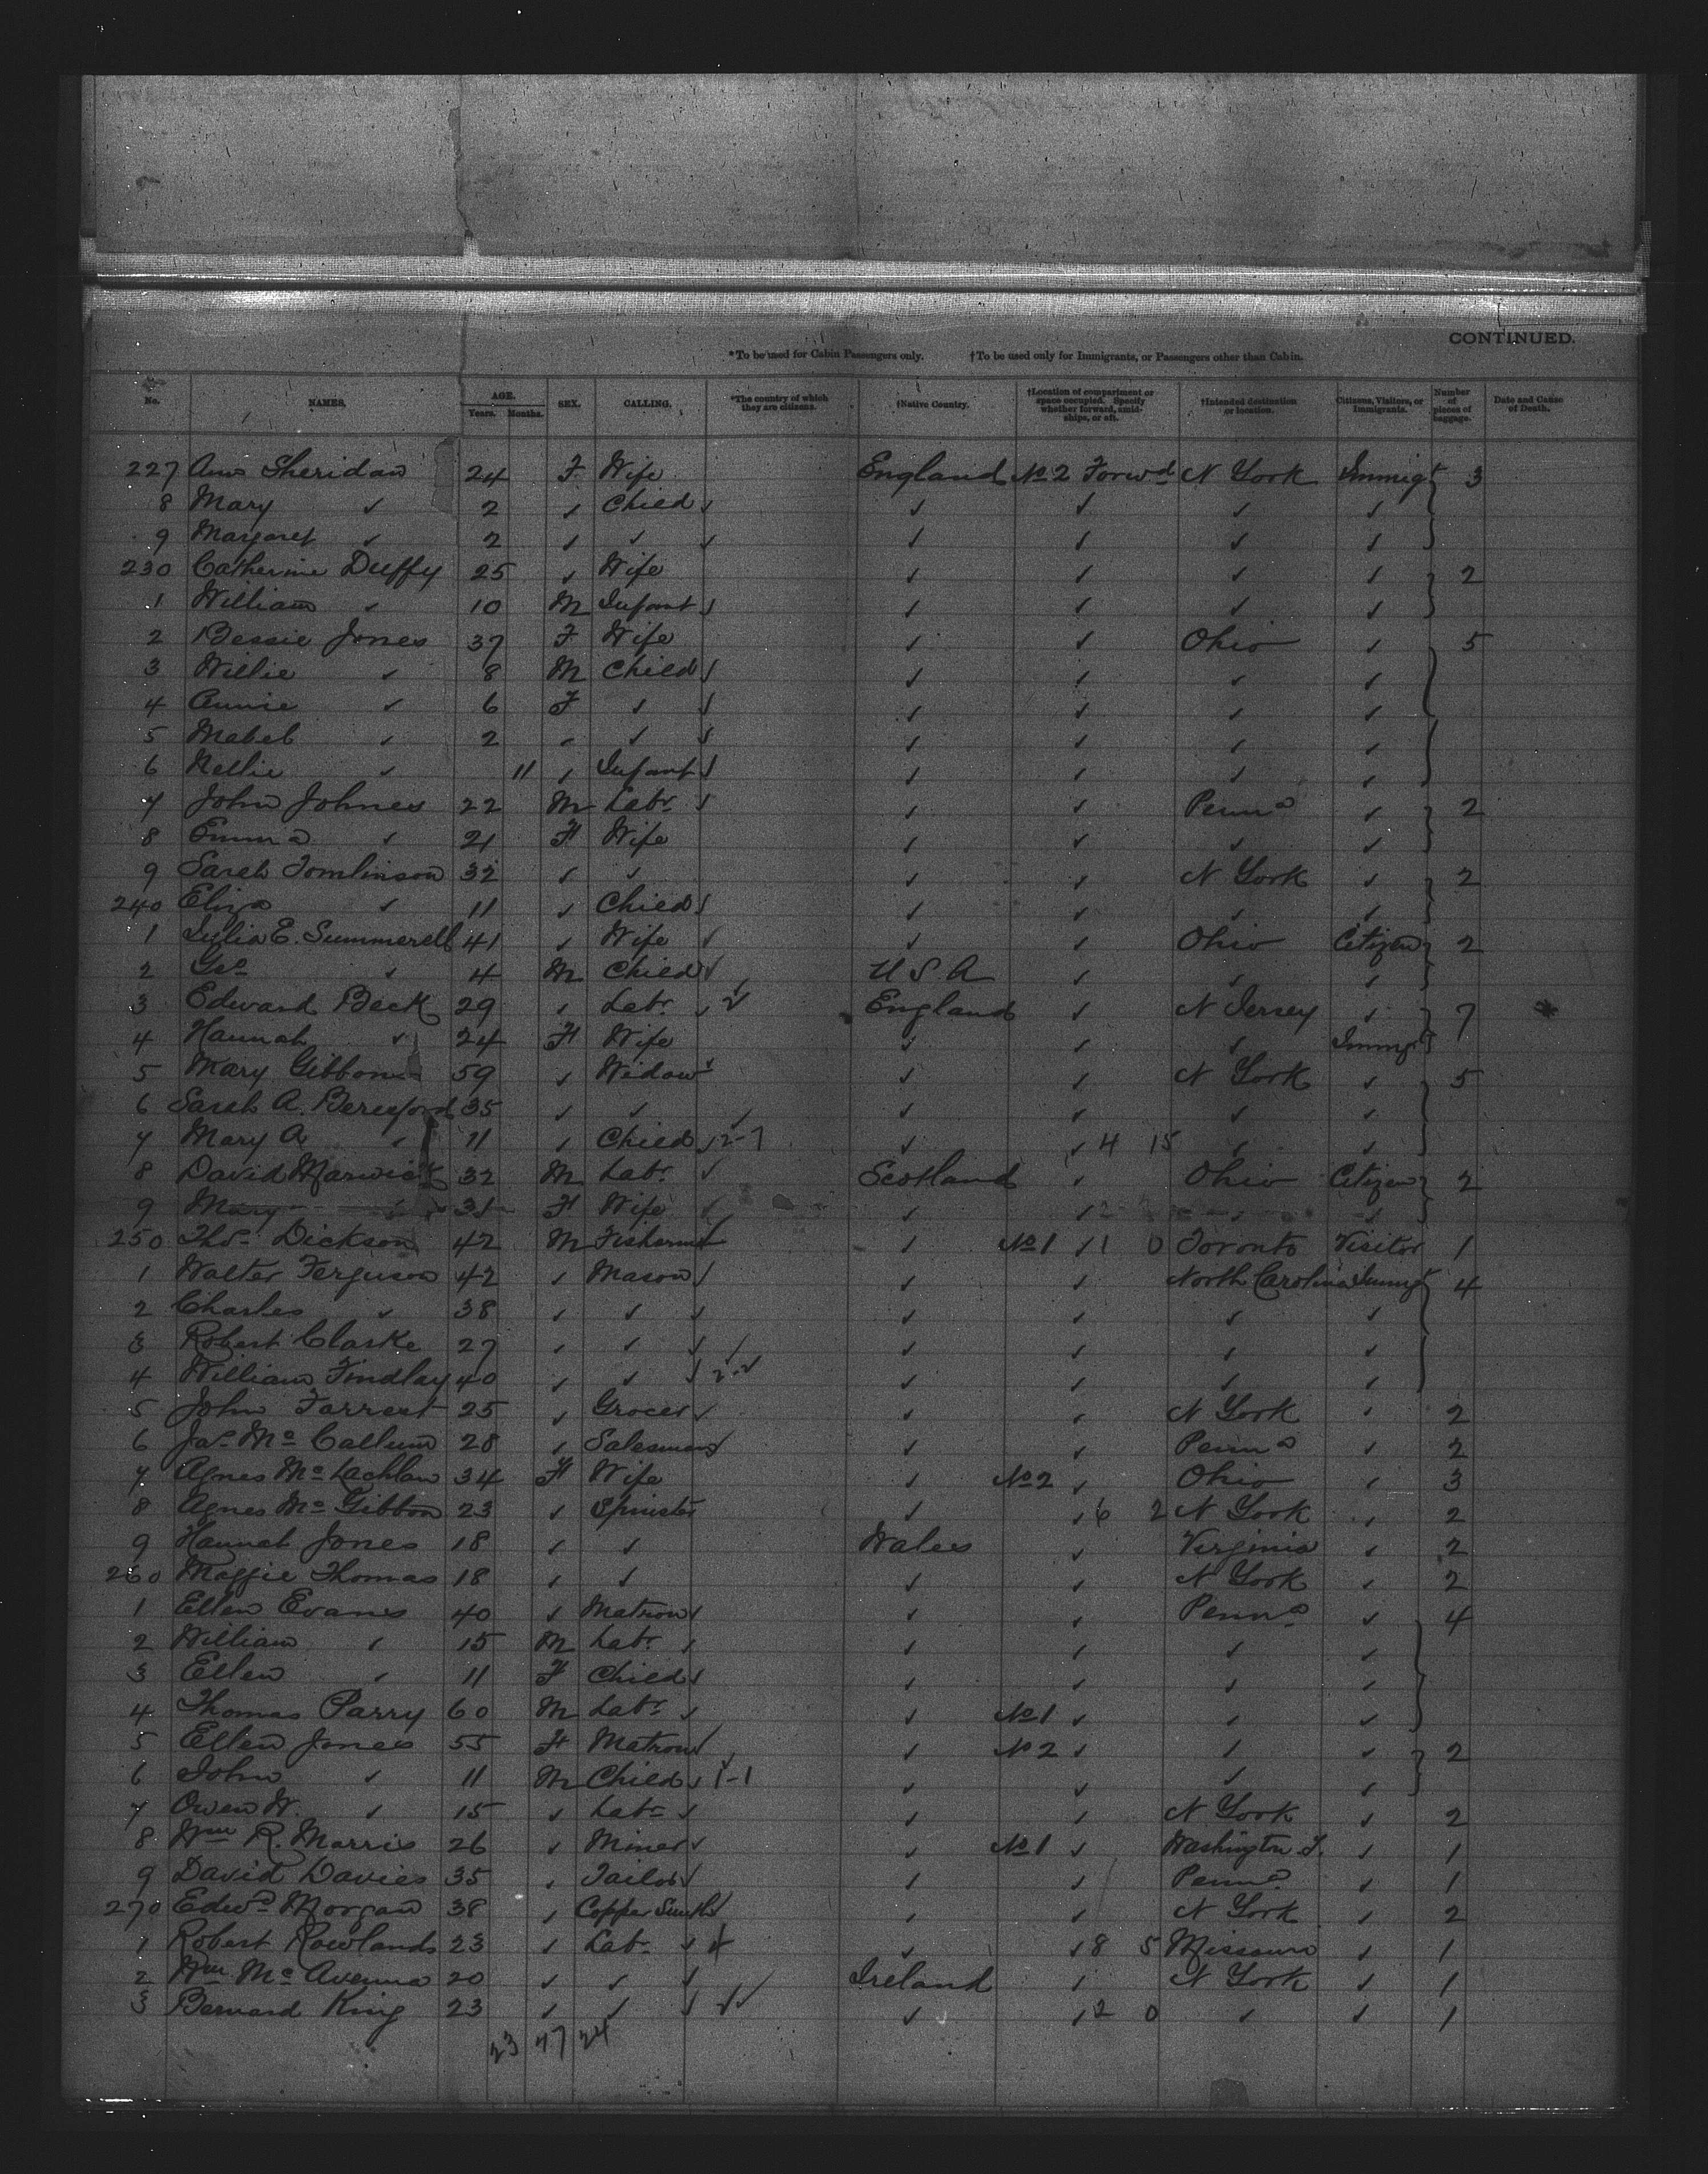 CONTINUED.
*To be used for Cabin Passengers only. †To be used only for Immigrants, or Passengers other than Cabin.
No. NAMES. AGE. Years. Months. SEX. CALLING. *The country of which they are citizens. †Native Country. †Location of compartment or space occupied. Specify whether forward, amidships, or aft. †Intended destination or location. Citizens, Visitors, or Immigrants. Number of pieces of baggage. Date and Cause of Death.
227 Ann Sheridan 24 F Wife England No 2 Forwd N York Immigt 3
8 Mary ✓ 2 ✓ Child ✓ ✓ ✓ ✓ ✓
9 Margaret ✓ 2 ✓ ✓ ✓ ✓ ✓ ✓ ✓
230 Catherine Duffy 25 ✓ Wife ✓ ✓ ✓ ✓ 2
1 William ✓ 10 M Infant ✓ ✓ ✓ ✓ ✓
2 Bessie Jones 37 F Wife ✓ ✓ Ohio ✓ 5
3 Willie ✓ 8 M Child ✓ ✓ ✓ ✓ ✓
4 Annie ✓ 6 F ✓ ✓ ✓ ✓ ✓ ✓
5 Mabel ✓ 2 ✓ ✓ ✓ ✓ ✓ ✓ ✓
6 Nellie ✓ 11 ✓ Infant ✓ ✓ ✓ ✓ ✓
7 John Johnes 22 M Labr ✓ ✓ ✓ Penna ✓ 2
8 Emma ✓ 21 F Wife ✓ ✓ ✓ ✓
9 Sarah Tomlinson 32 ✓ ✓ ✓ ✓ N York ✓ 2
240 Eliza ✓ 11 ✓ Child ✓ ✓ ✓ ✓ ✓
1 E. Summerell 41 ✓ Wife ✓ ✓ ✓ Ohio Citizen 2
2 Geo ✓ 4 M Child ✓ U S A ✓ ✓ ✓
3 Edward Beck 29 ✓ Labr ✓ 2 England ✓ N Jersey ✓ 7
4 Hannah ✓ 24 F Wife ✓ ✓ ✓ Immigt
5 Mary Gibbons 59 ✓ Widow ✓ ✓ ✓ N York ✓ 5
6 Sarah A. Beresford 35 ✓ ✓ ✓ ✓ ✓ ✓
7 Mary A ✓ 11 ✓ Child ✓ 2-7 ✓ ✓ 4 15 ✓ ✓
8 David Marwick 32 M Labr ✓ Scotland ✓ Ohio Citizen 2
9 Mary ✓ 31 F Wife ✓ ✓ ✓ ✓ ✓
250 Thos Dickson 42 M Fisherman ✓ No 1 ✓ 1 0 Toronto Visitor 1
1 Walter Ferguson 42 ✓ Mason ✓ ✓ ✓ North Carolina Immigt 4
2 Charles ✓ 38 ✓ ✓ ✓ ✓ ✓ ✓ ✓
3 Robert Clarke 27 ✓ ✓ ✓ ✓ ✓ ✓ ✓
4 William Findlay 40 ✓ ✓ ✓ ✓ ✓ ✓ ✓
5 John Farrest 25 ✓ Grocer ✓ ✓ ✓ N York ✓ 2
6 Jas Mc Callum 28 ✓ Salesman ✓ ✓ ✓ Penna ✓ 2
7 Agnes Mc Lachlan 34 F Wife ✓ No 2 ✓ Ohio ✓ 3
8 Agnes Mc Gibbon 23 ✓ Spinster ✓ ✓ 6 2 N York ✓ 2
9 Hannah Jones 18 ✓ ✓ Wales ✓ Virginia ✓ 2
260 Maggie Thomas 18 ✓ ✓ ✓ ✓ N York ✓ 2
1 Ellen Evans 40 ✓ Matron ✓ ✓ ✓ Penna ✓ 4
2 William ✓ 15 M Labr ✓ ✓ ✓ ✓ ✓
3 Ellen ✓ 11 F Child ✓ ✓ ✓ ✓ ✓
4 Thomas Parry 60 M Labr ✓ ✓ No 1 ✓ ✓ ✓
5 Ellen Jones 55 F Matron ✓ ✓ No 2 ✓ ✓ ✓ 2
6 John ✓ 11 M Child ✓ 1-1 ✓ ✓ ✓ ✓
7 Owen W. ✓ 15 ✓ Labr ✓ ✓ ✓ N York ✓ 2
8 Wm R. Morris 26 ✓ Miner ✓ ✓ No 1 ✓ Washington T. ✓ 1
9 David Davies 35 ✓ Tailor ✓ ✓ ✓ Penna ✓ 1
270 Edwd Morgan 38 ✓ Copper Smith ✓ ✓ ✓ N York ✓ 2
1 Robert Rowlands 23 ✓ Labr ✓ 4 ✓ ✓ 8 5 Missouri ✓ 1
2 Wm Mc Avenna 20 ✓ ✓ ✓ Ireland ✓ N York ✓ 1
3 Bernard King 23 ✓ ✓ ✓ ✓✓ ✓ ✓ 2 0 ✓ ✓ 1
23 47 24